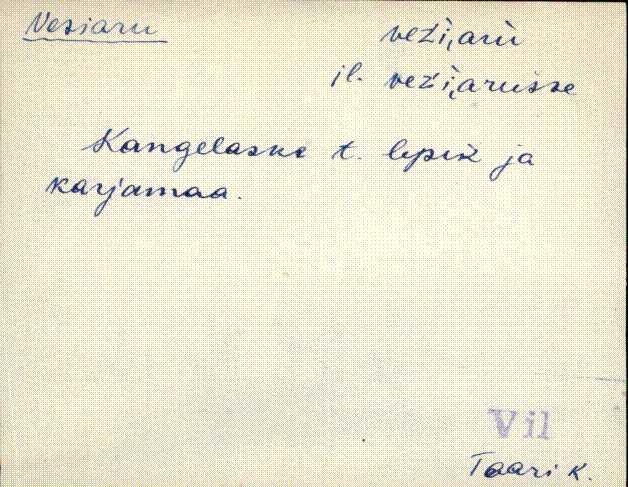 Vesiaru veźi̮aru
il. veźi̮arusse
Kangelaske t. lepik ja
karjamaa.
Vil
Taari k.